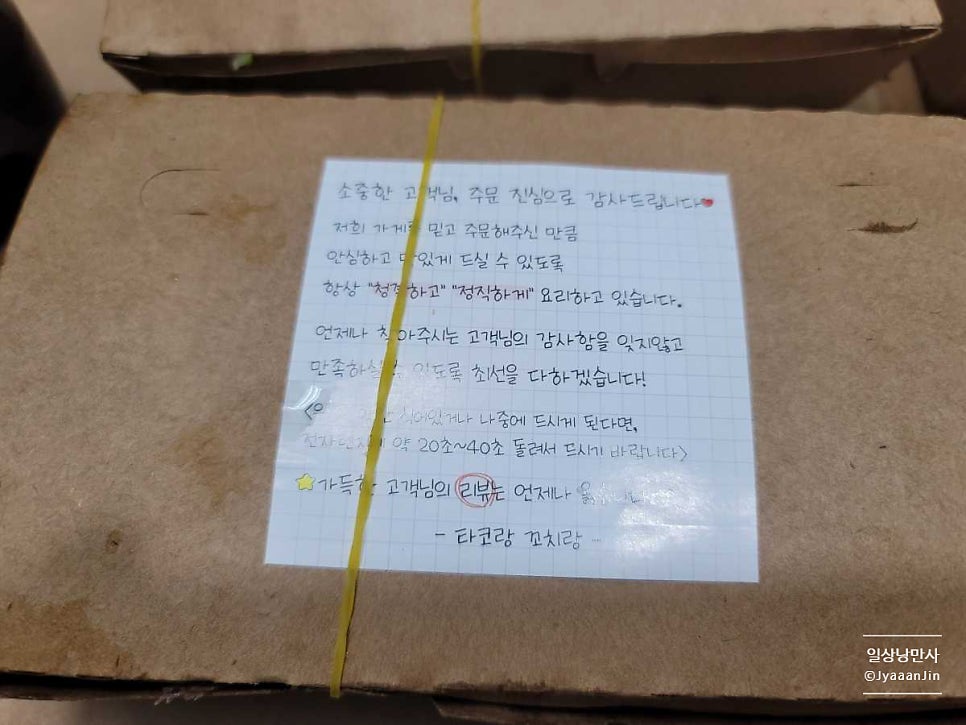 소중한 고객님, 주문 진심으로 감사드립니다
저희 가게를 믿고 주문해주신 만큼
안심하고 맛있게 드실 수 있도록
항상 "청결하고" "정직하게" 요리하고 있습니다.
언제나 찾아주시는 고객님의 감사함을 잊지않고
만족하실 수 있도록 최선을 다하겠습니다!
식어있거나 나중에 드시게 된다면,
전자렌지에 약 20초~40초 돌려서 드시기 바랍니다>
가득한 고객님의 리뷰는 언제나
- 타코랑 꼬치랑 -
일상낭만사
©JyaaanJin